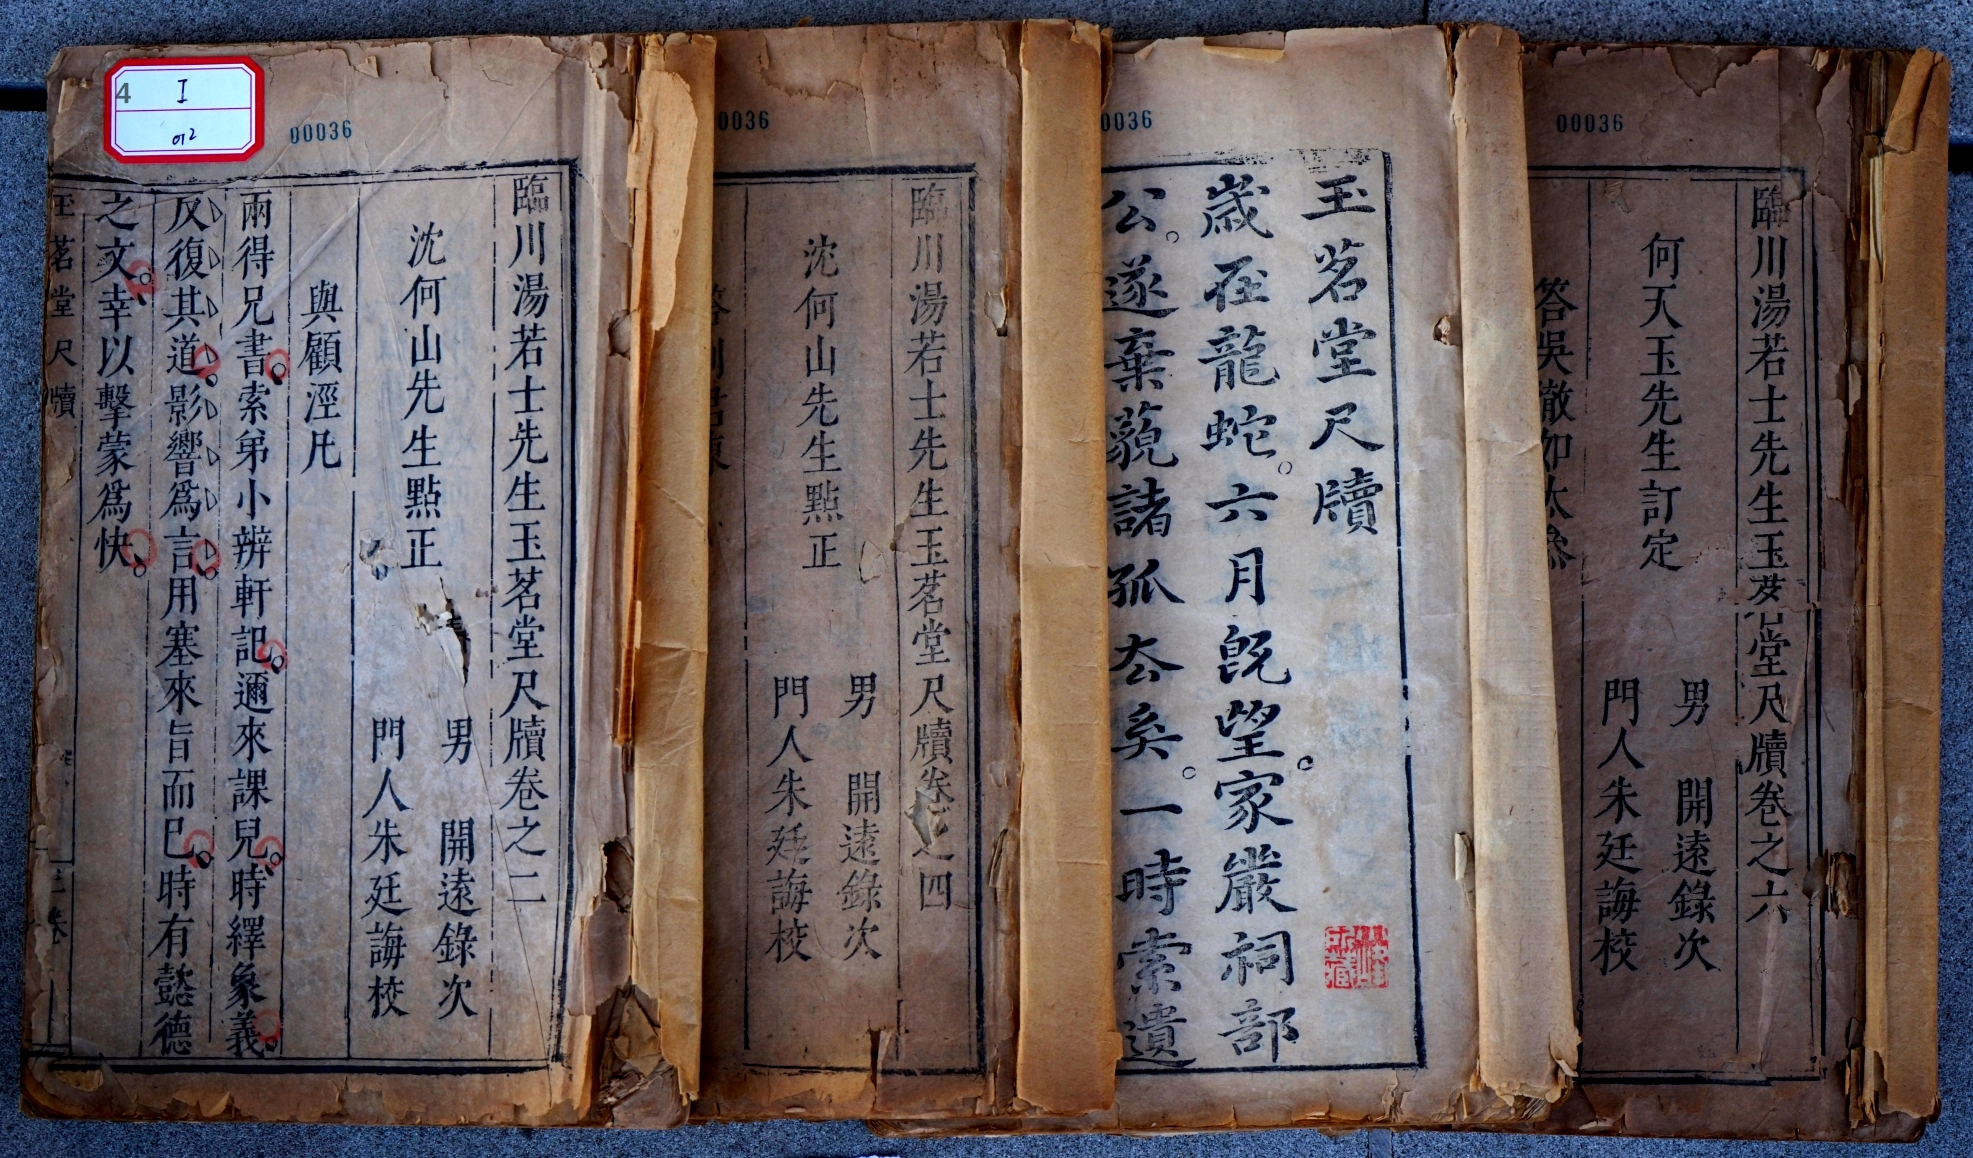 4
I
012
00036
臨川湯若士先生玉茗堂尺牘卷之二
沈何山先生點正
男 開遠錄次
門人朱廷誨校
與顧涇凡
兩得兄書。索弟小辨軒記。邇來課兒。時繹象義。
反復其道。影響爲言。用塞來旨而已。時有懿德
之文。幸以擊蒙爲快。
玉茗堂尺牘
0036
臨川湯若士先生玉茗堂尺牘卷之四
沈何山先生點正
男 開遠錄次
門人朱廷誨校
0036
玉茗堂尺牘
歲在龍蛇。六月旣望。家嚴祠部
公。遂棄藐諸孤去矣。一時索遺
00036
臨川湯若士先生玉茗堂尺牘卷之六
何天玉先生訂定
男 開遠錄次
門人朱廷誨校
答吳徹如太參